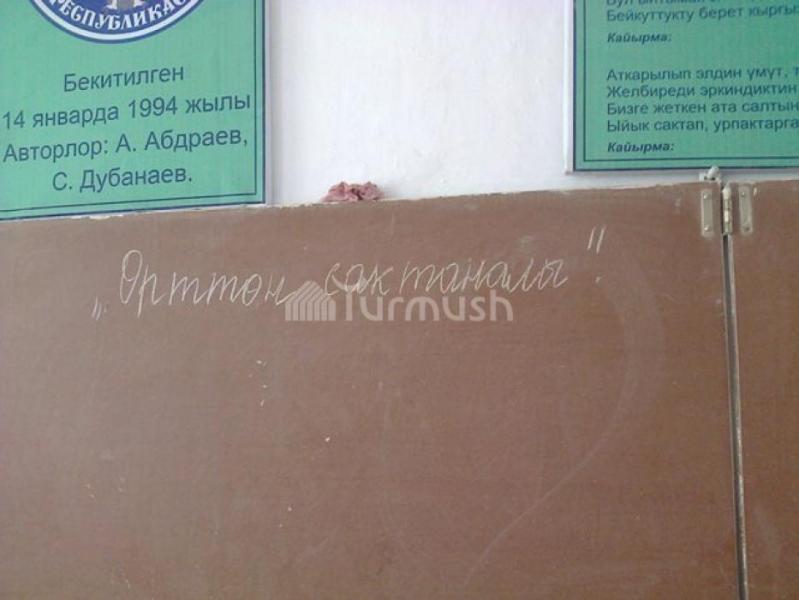 РЕСПУБЛИКАС
Бекитилген
14 январда 1994 жылы
Авторлор: А. Абдраев,
С. Дубанаев.
Бейкуттукту берет кыргыз
Кайырма:
Аткарылып элдин үмүт, т
Желбиреди эркиндиктин
Бизге жеткен ата салтын
Ыйык сактап, урпактарга
Кайырма:
„Өрттөн сактаналы".
Turmush